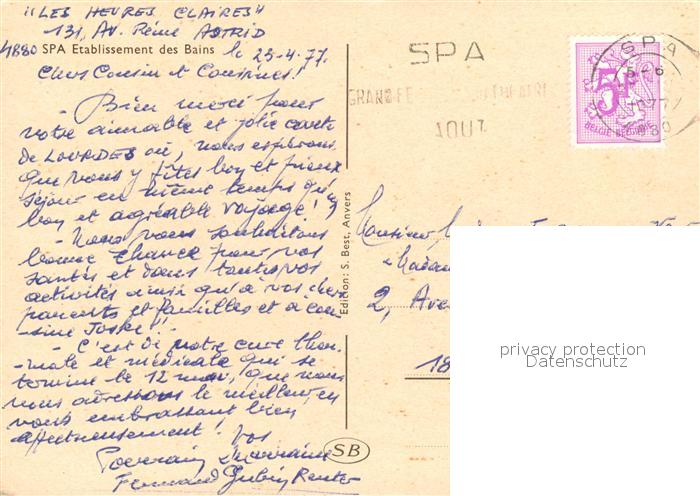 "LES HEURES CLAIRES"
131, Av. Reine ASTRID
4880 SPA Etablissement des Bains le 25-4-77.
Chers Cousin et Cousines!
- Bien merci pour
votre aimable et jolie carte
de LOURDES où, nous espérons
que vous y fîtes bon et pieux
séjour en même temps qu'un
bon et agréable voyage!
- Nous vous souhaitons
bonne chance pour vos
santés et dans toutes vos
activités ainsi qu'à vos chers
parents et familles et à cou-
sine Joske!
- C'est de notre cure ther-
male et médicale qui se
termine le 12 mai, que nous
vous adressons le meilleur en
vous embrassant bien
affectueusement! Vos
Parrain Marraine
Fernand
Edition: S. Best, Anvers
SB
SPA
GRAND FE THEATRE
AOUT
SPA
5F
BELGIE-BELGIQUE
Monsieur
2, Ave
18
privacy protection
Datenschutz